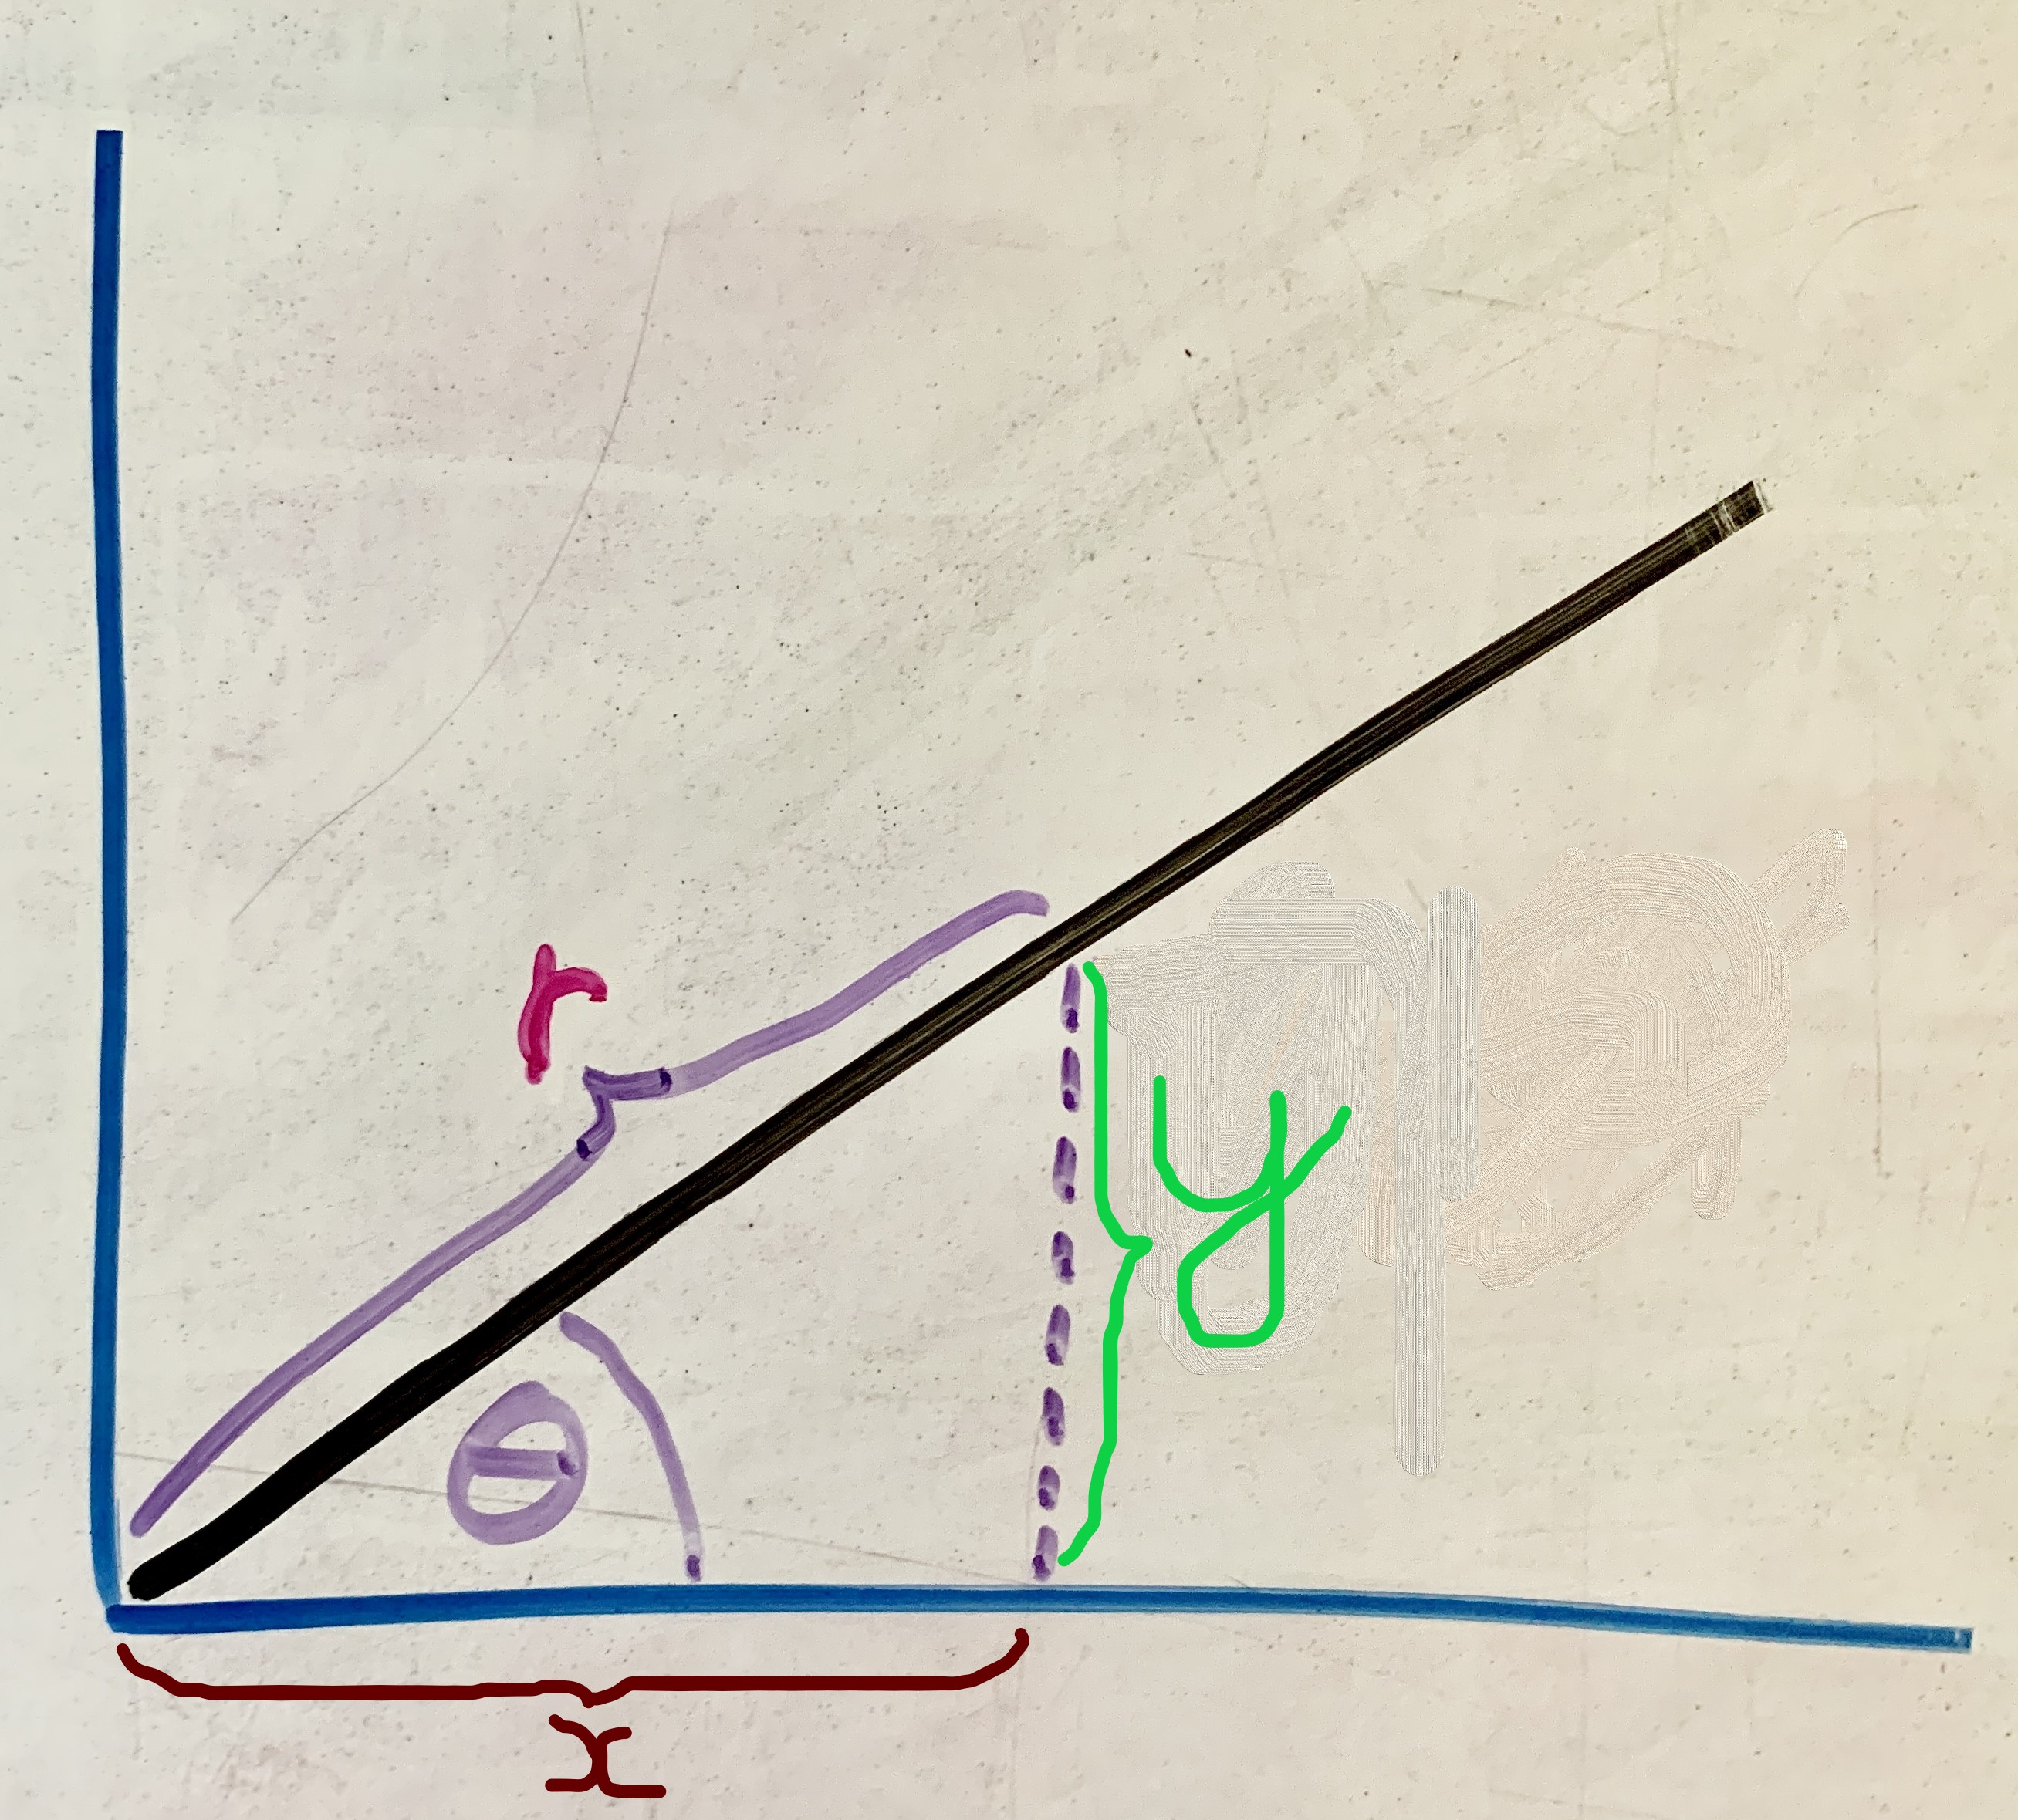 r
y
θ
x